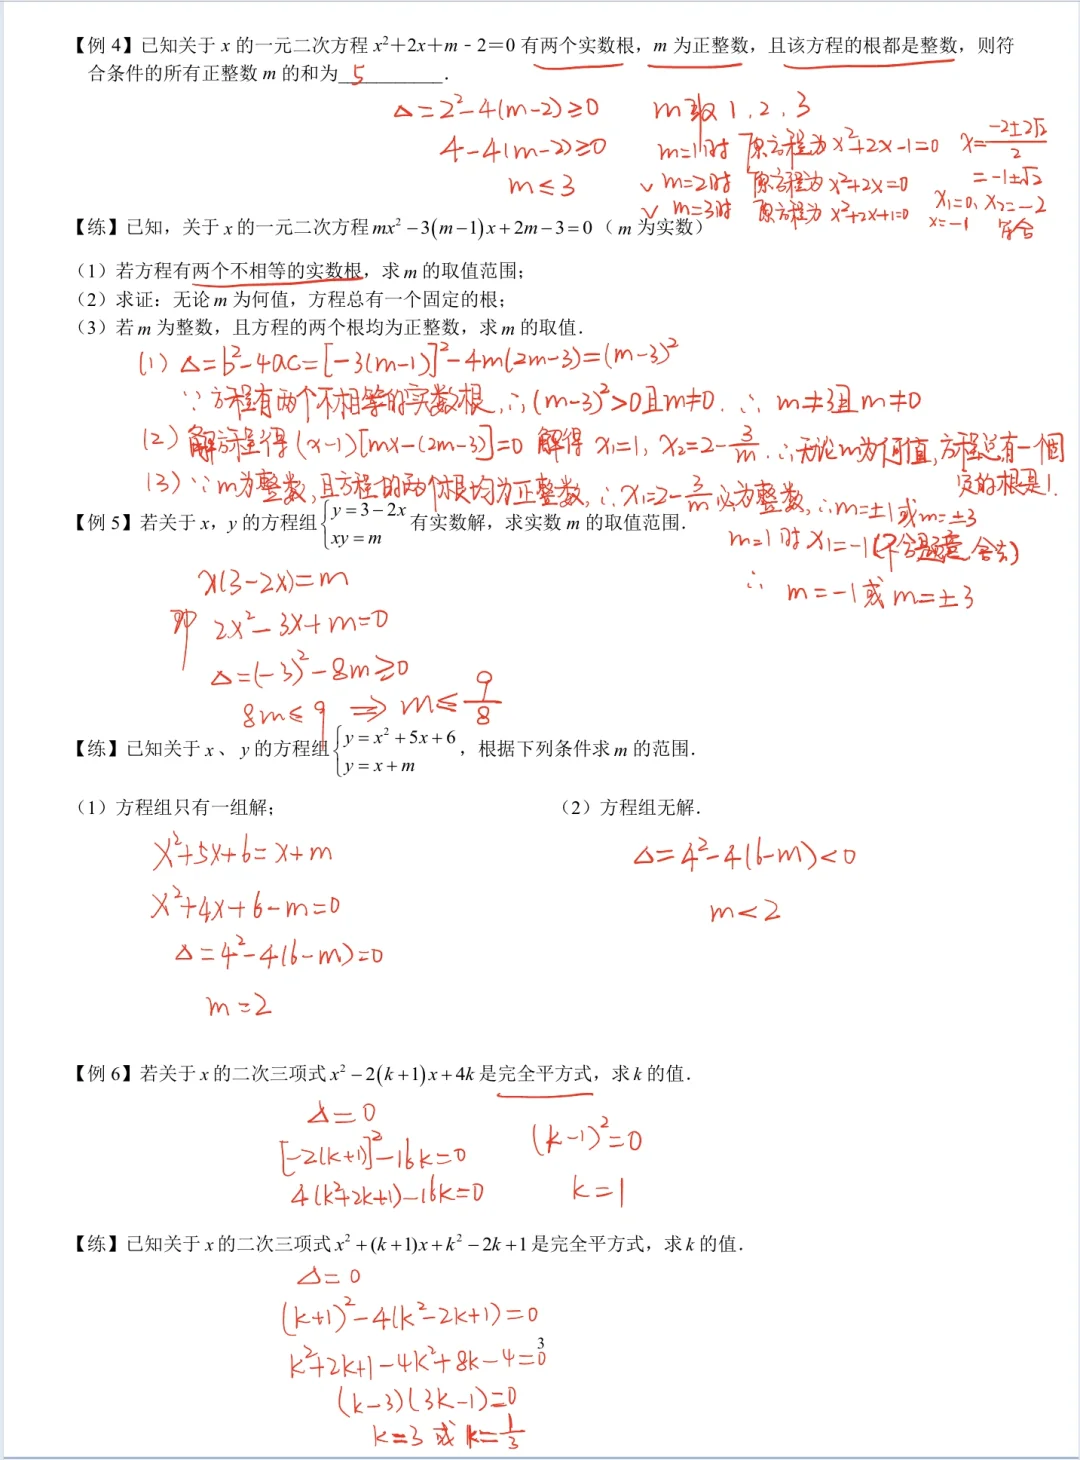 【例 4】已知关于 x 的一元二次方程 x²+2x+m﹣2=0 有两个实数根，m 为正整数，且该方程的根都是整数，则符
合条件的所有正整数 m 的和为 5 .
Δ=2²-4(m-2)≥0 m取 1, 2, 3
4-4(m-2)≥0 m=1时 原方程为 x²+2x-1=0 x=(-2±2√2)/2
=-1±√2
m≤3 √ m=2时 原方程为 x²+2x=0 x₁=0, x₂=-2
√ m=3时 原方程为 x²+2x+1=0 x=-1 符合
【练】已知，关于 x 的一元二次方程 mx²-3(m-1)x+2m-3=0（m 为实数）
（1）若方程有两个不相等的实数根，求 m 的取值范围；
（2）求证：无论 m 为何值，方程总有一个固定的根；
（3）若 m 为整数，且方程的两个根均为正整数，求 m 的取值.
(1) Δ=b²-4ac=[-3(m-1)]²-4m(2m-3)=(m-3)²
∵方程有两个不相等的实数根,∴(m-3)²>0且m≠0. ∴ m≠3且m≠0
(2) 解方程得 (x-1)[mx-(2m-3)]=0 解得 x₁=1, x₂=2-3/m .∴无论m为何值,方程总有一个固
定的根是1.
(3)∵m为整数,且方程的两个根均为正整数,∴x₁=2-3/m 必为整数,∴m=±1或m=±3
m=1时 x₁=-1(不合题意 舍去)
∴ m=-1或m=±3
【例 5】若关于 x，y 的方程组{y=3-2x xy=m 有实数解，求实数 m 的取值范围.
x(3-2x)=m
即 2x²-3x+m=0
Δ=(-3)²-8m≥0
8m≤9 ⇒ m≤9/8
【练】已知关于 x 、 y 的方程组{y=x²+5x+6 y=x+m ，根据下列条件求 m 的范围.
（1）方程组只有一组解； （2）方程组无解.
x²+5x+6=x+m Δ=4²-4(6-m)<0
x²+4x+6-m=0 m<2
Δ=4²-4(6-m)=0
m=2
【例 6】若关于 x 的二次三项式 x²-2(k+1)x+4k 是完全平方式，求 k 的值.
Δ=0
[-2(k+1)]²-16k=0 (k-1)²=0
4(k²+2k+1)-16k=0 k=1
【练】已知关于 x 的二次三项式 x²+(k+1)x+k²-2k+1 是完全平方式，求 k 的值.
Δ=0
(k+1)²-4(k²-2k+1)=0
3
k²+2k+1-4k²+8k-4=0
(k-3)(3k-1)=0
k=3 或 k=1/3